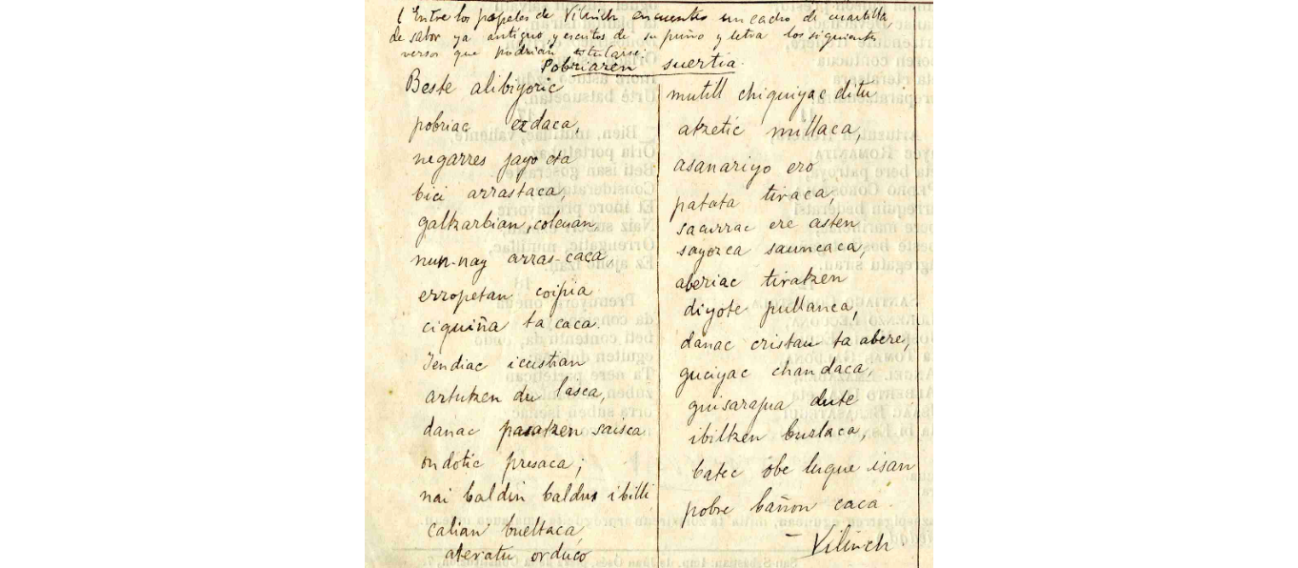 ( Entre los papeles de Vilinch encuentro un cacho de cuartilla
de sabor ya antiguo, y escritos de su puño y letra los siguientes
versos que podrian titularse:
Pobriaren suertia.
Beste alibiyoric
pobriac ezdaca,
negarres jayo eta
bici arrastaca,
galtzarbian, colcuan,
nun-nay arras-caca
erropetan coipia
ciquiña ta caca.
Jendiac icustian
artutzen du lasca,
danac pasatzen saisca
ondotic presaca;
nai baldin baldus ibilli
calian bueltaca,
ateratu orduco
mutill chiquiyac ditu
atzetic millaca,
asanariyo ero
patata tiraca,
sacurrac ere asten
sayozca sauncaca,
aberiac tiratzen
diyote pullanca,
danac cristau ta abere,
guciyac chandaca,
guisarajua dute
ibiltzen burlaca,
batec obe luque isan
pobre bañon caca.
- Vilinch.